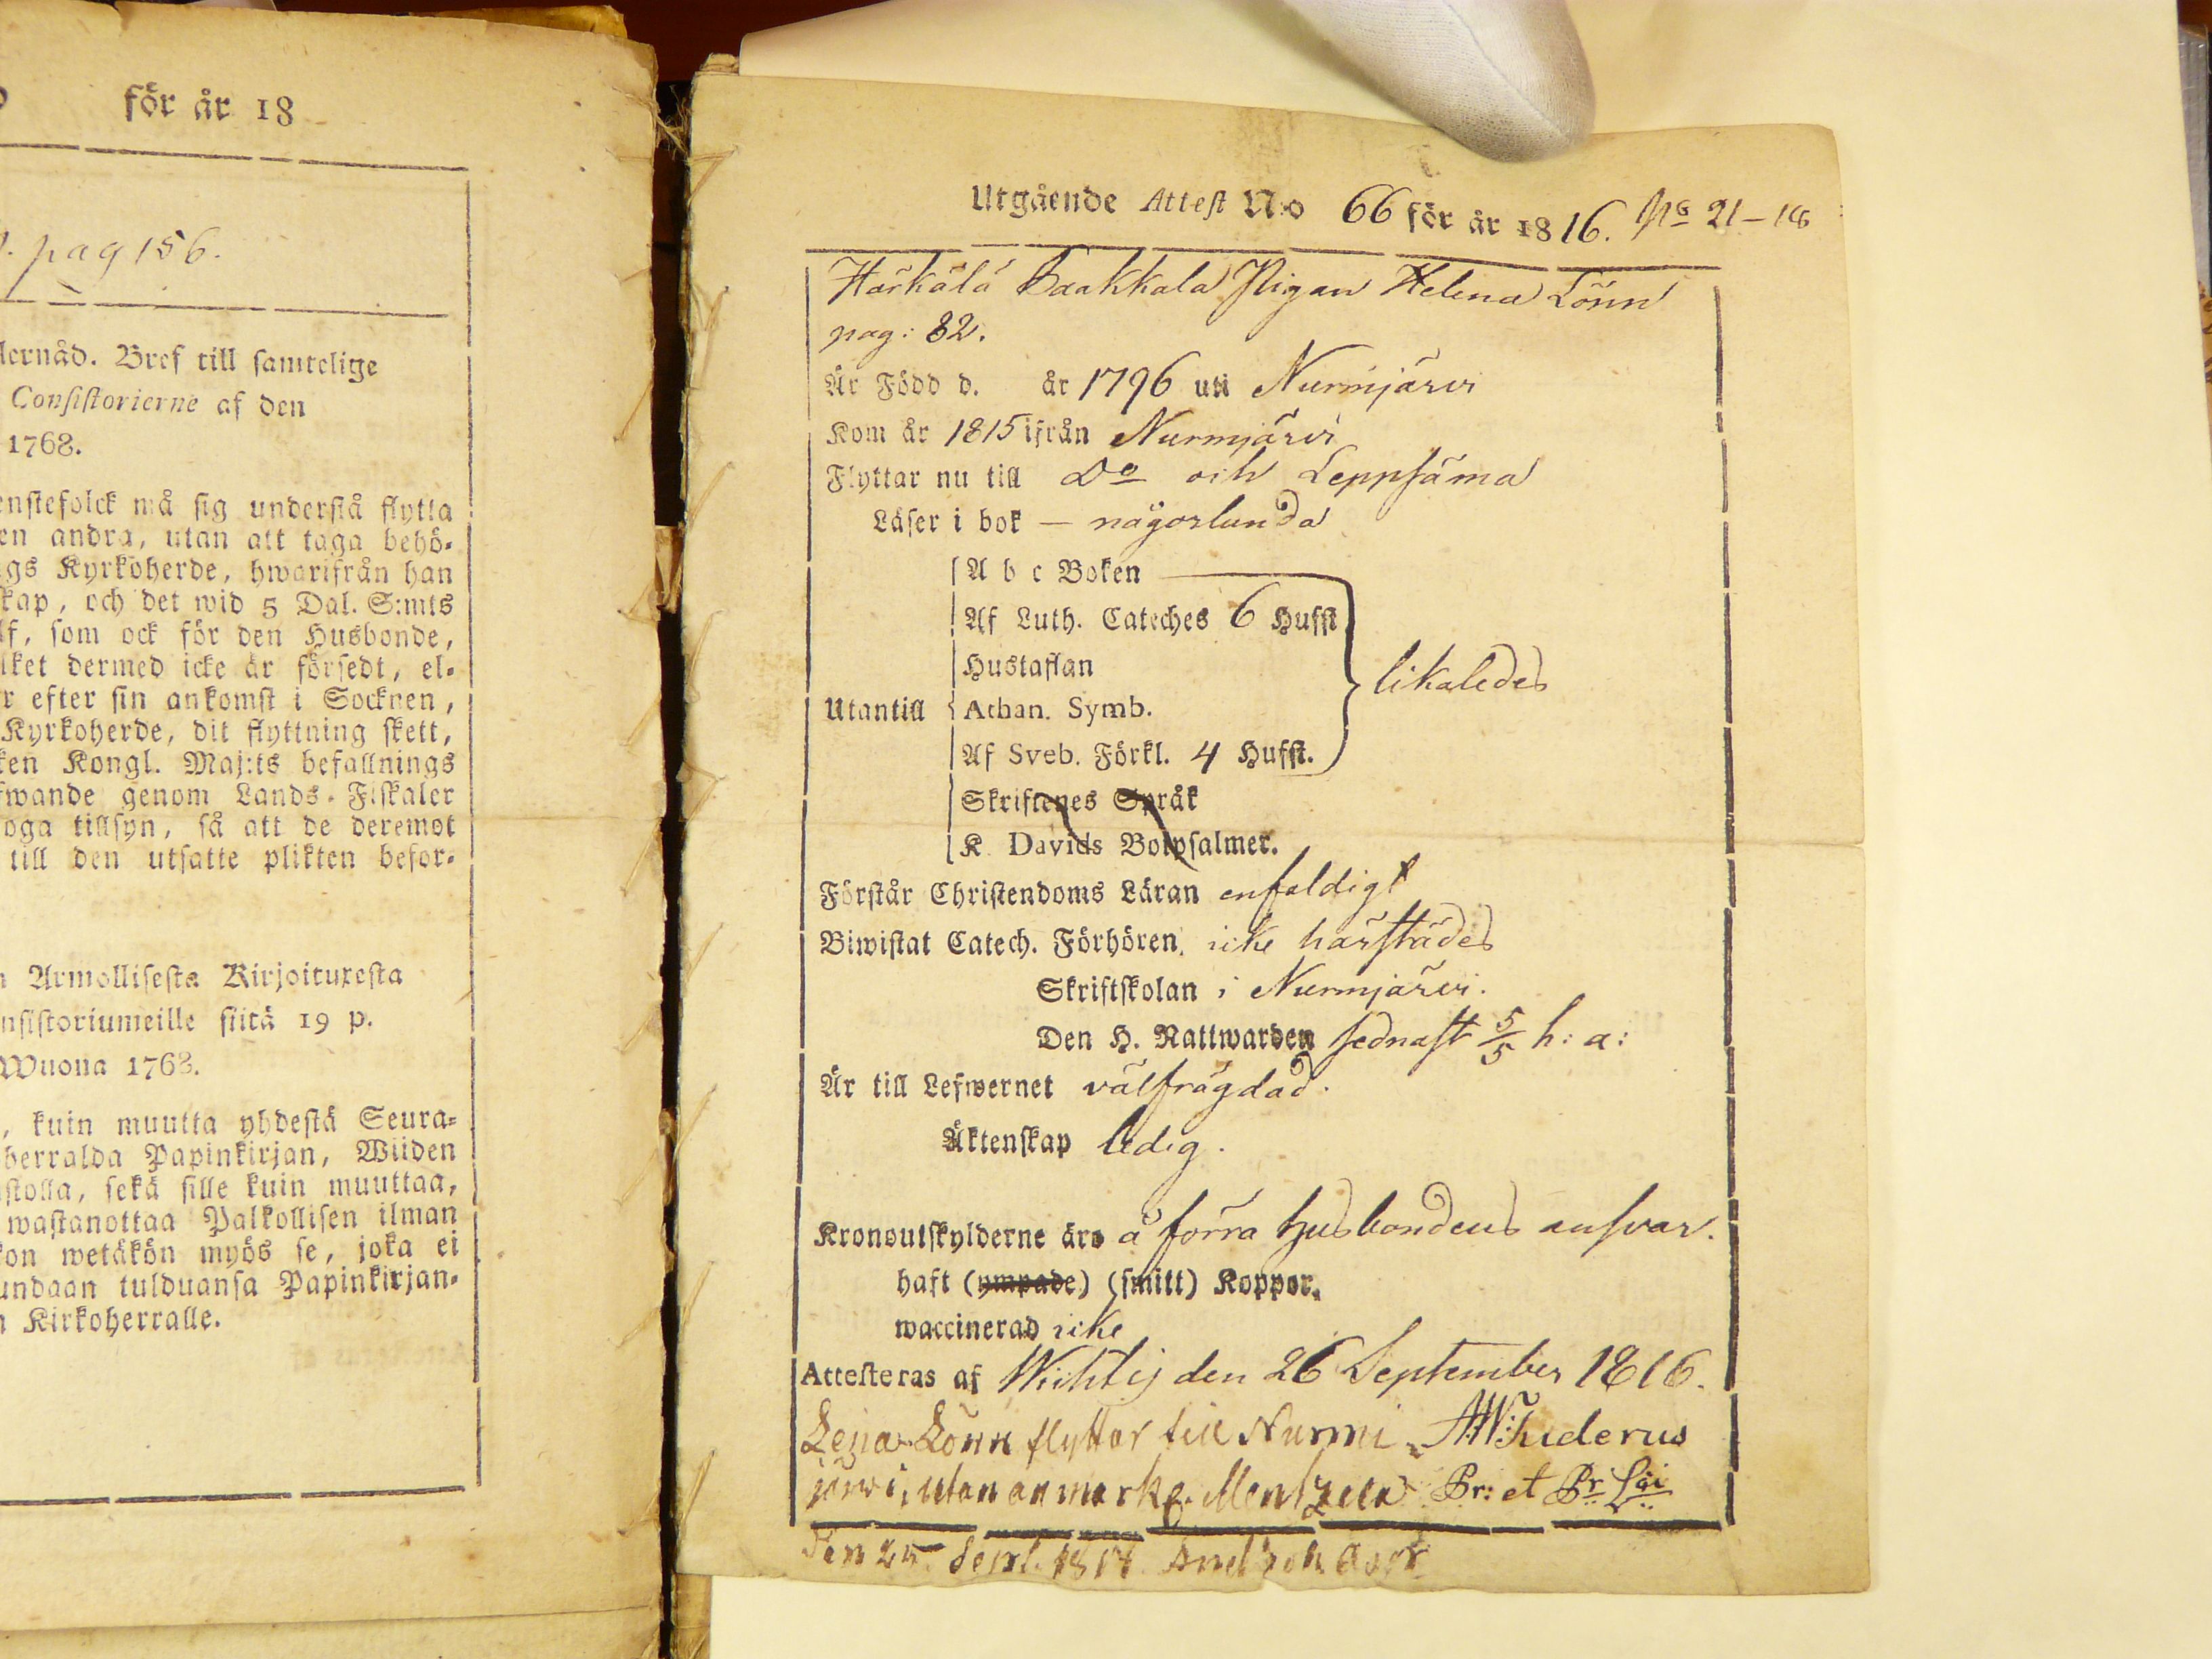 för år 18
pag 156.
lernåd. Bref till samtelige
Consistorierne af den
1768.
enstefolck må sig understå flytta
en andra, utan att taga behö-
gs Kyrkoherde, hwarifrån han
kap, och det wid 5 Dal. S:mts
lf, som ock för den Husbonde,
lket dermed icke är försedt, el-
r efter sin ankomst i Socknen,
Kyrkoherde, dit flyttning skett,
ken Kongl. Maj:ts befallnings
fwande genom Lands-Fiskaler
oga tillsyn, så att de deremot
till den utsatte plikten befor-
Armollisesta Kirjoituxesta
nsistoriumeille siitä 19 p.
Wuona 1768.
, kuin muutta yhdestä Seura-
herralda Papinkirjan, Wiiden
stolla, sekä sille kuin muuttaa,
wastanottaa Palkollisen ilman
kon wetäkön myös se, joka ei
undaan tulduansa Papinkirjan-
Kirkoherralle.
Utgående Attest N:o 66 för år 1816. No 21-18
Härkälä Baakkala Pigan Helena Lönn
pag: 82.
Är Född d. år 1796 uti Nurmjärvi
Kom år 1815 ifrån Nurmjärvi
Flyttar nu till Do och Leppsäma
Läser i bok - någorlunda
A b c Boken
Af Luth. Cateches 6 Hufst
Hustaflan
likaledes
Utantill Athan. Symb.
Af Sveb. Förkl. 4 Hufst.
Skriftenes Språk
K. Davids Botpsalmer.
Förstår Christendoms Läran enfaldigt
Biwistat Catech. Förhören, icke härstädes
Skriftskolan i Nurmjärvi.
Den H. Nattwarden sednast 5/5 h: a:
Är till Lefwernet välfrägdad.
Äktenskap ledig.
Kronoutskylderne äro å förra husbondens ansvar.
haft (ympade) (smitt) Koppor.
waccinerad icke
Attesteras af Wichtis den 26 September 1816.
Lena Lönn flyttar till Nurmi
järwi, utan anmärk. Pr: et
den 25 Sept.